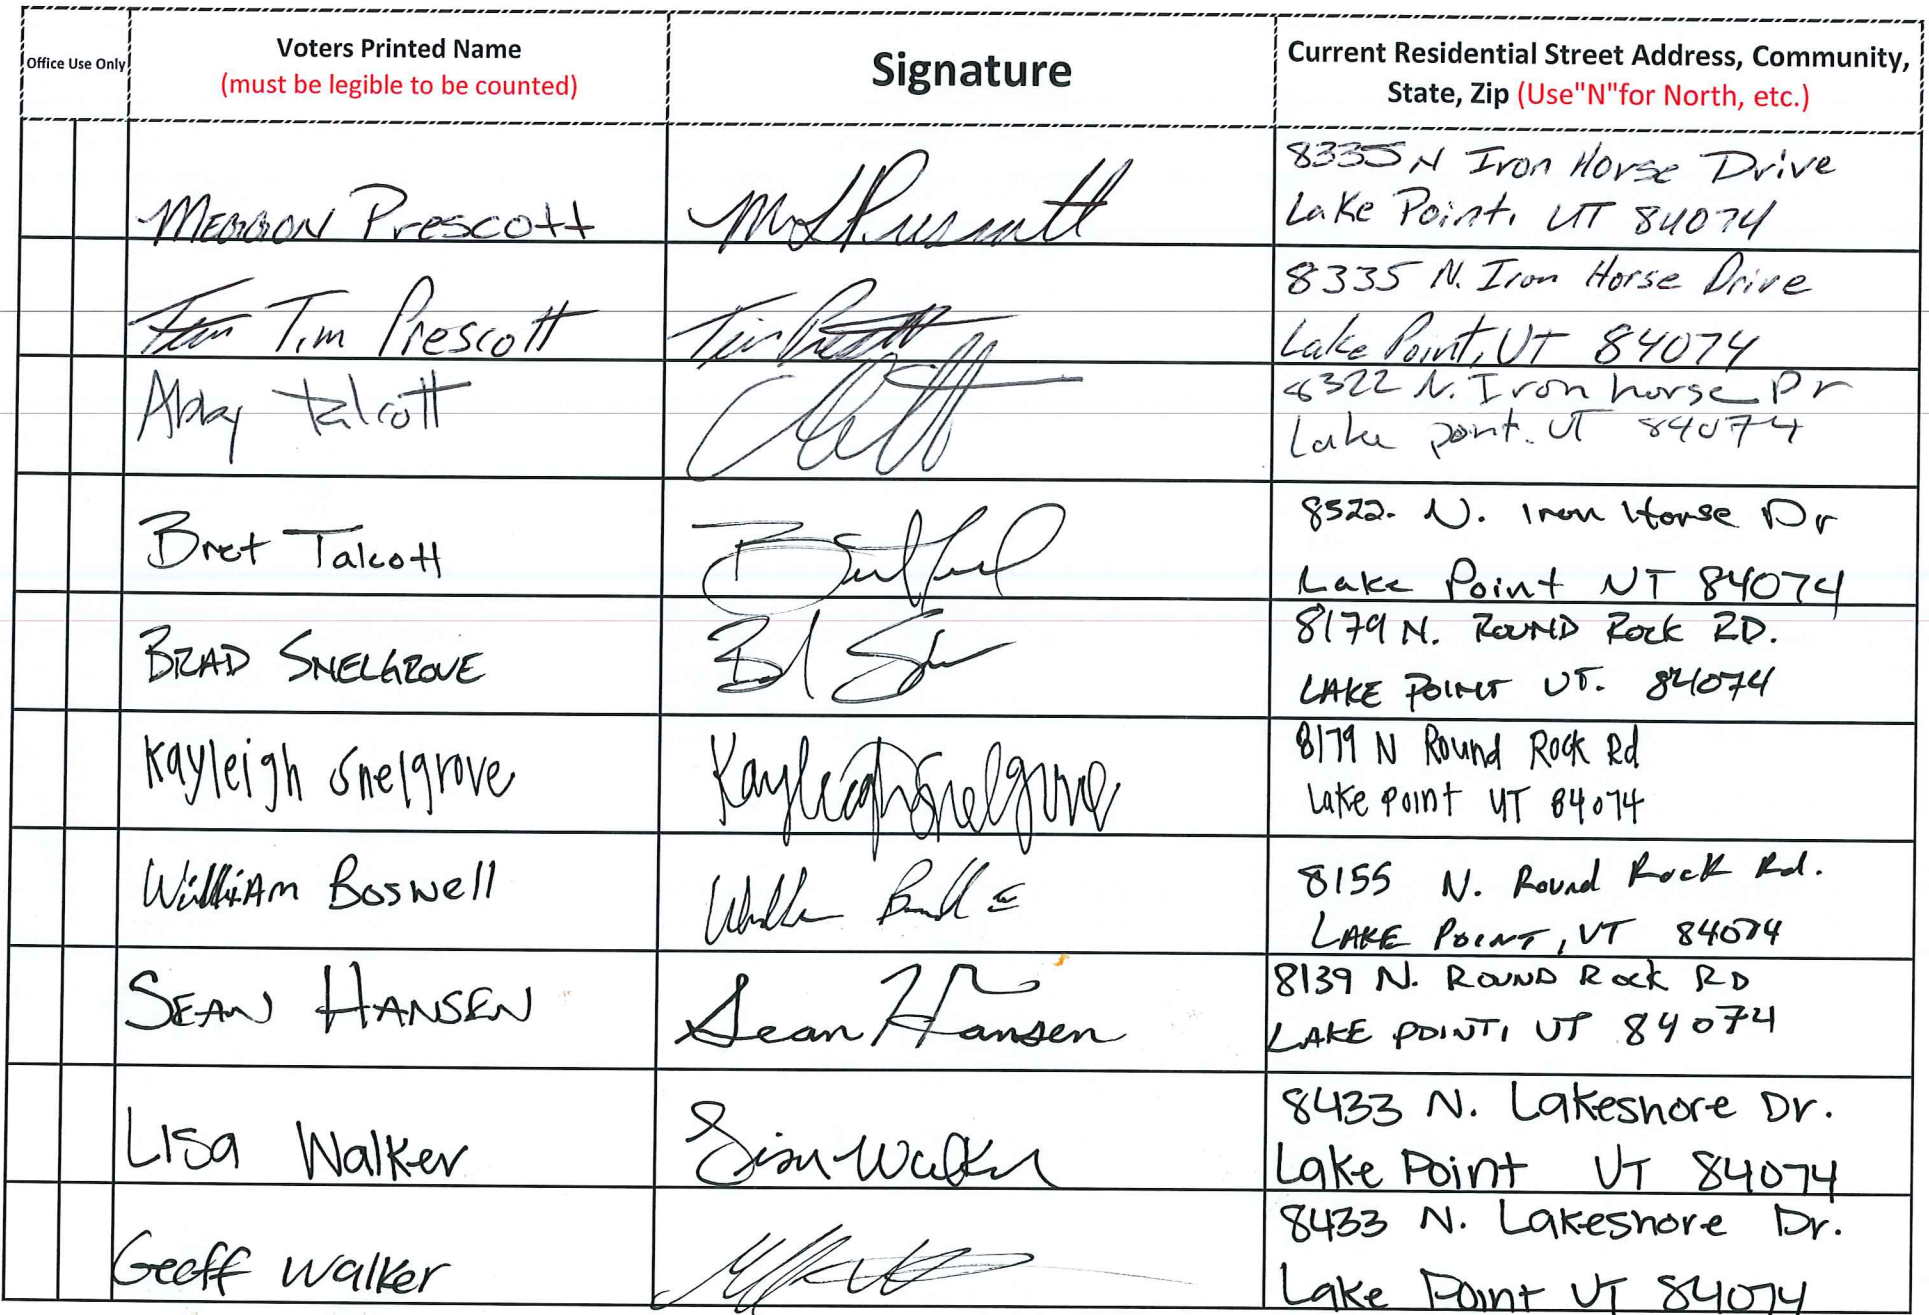 Office Use Only
Voters Printed Name
(must be legible to be counted)
Signature
Current Residential Street Address, Community,
State, Zip (Use"N"for North, etc.)
Prescott
8335 N Iron Horse Drive
Lake Point, UT 84074
Tim Prescott
Tim
8335 N. Iron Horse Drive
Lake Point, UT 84074
Abby Talcott
8322 N. Iron horse Dr
Lake point. UT 84074
Bret Talcott
N. Iron Horse Dr
Lake Point UT 84074
BRAD SNELGROVE
8179 N. ROUND ROCK RD.
LAKE POINT UT. 84074
Kayleigh Snelgrove
Kayleigh Snelgrove
8179 N Round Rock Rd
Lake point UT 84074
William Boswell
8155 N. Round Rock Rd.
LAKE POINT, UT 84074
SEAN HANSEN
Sean Hansen
8139 N. ROUND ROCK RD
LAKE POINT, UT 84074
Lisa Walker
Lisa Walker
8433 N. Lakeshore Dr.
Lake Point UT 84074
Geoff Walker
8433 N. Lakeshore Dr.
Lake Point UT 84074